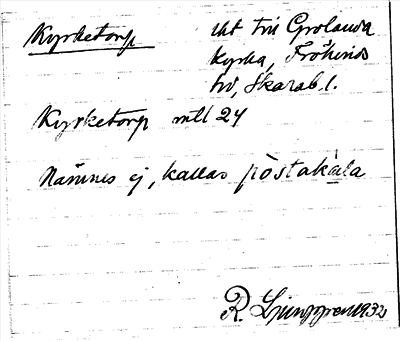 Kyrketorp
tht till Grolanda
kyrka, Frökinds
hd, Skarab. l.
Kyrketorp mtl 24
Nämnes ej, kallas pòstakâla
R. Ljunggren 1932